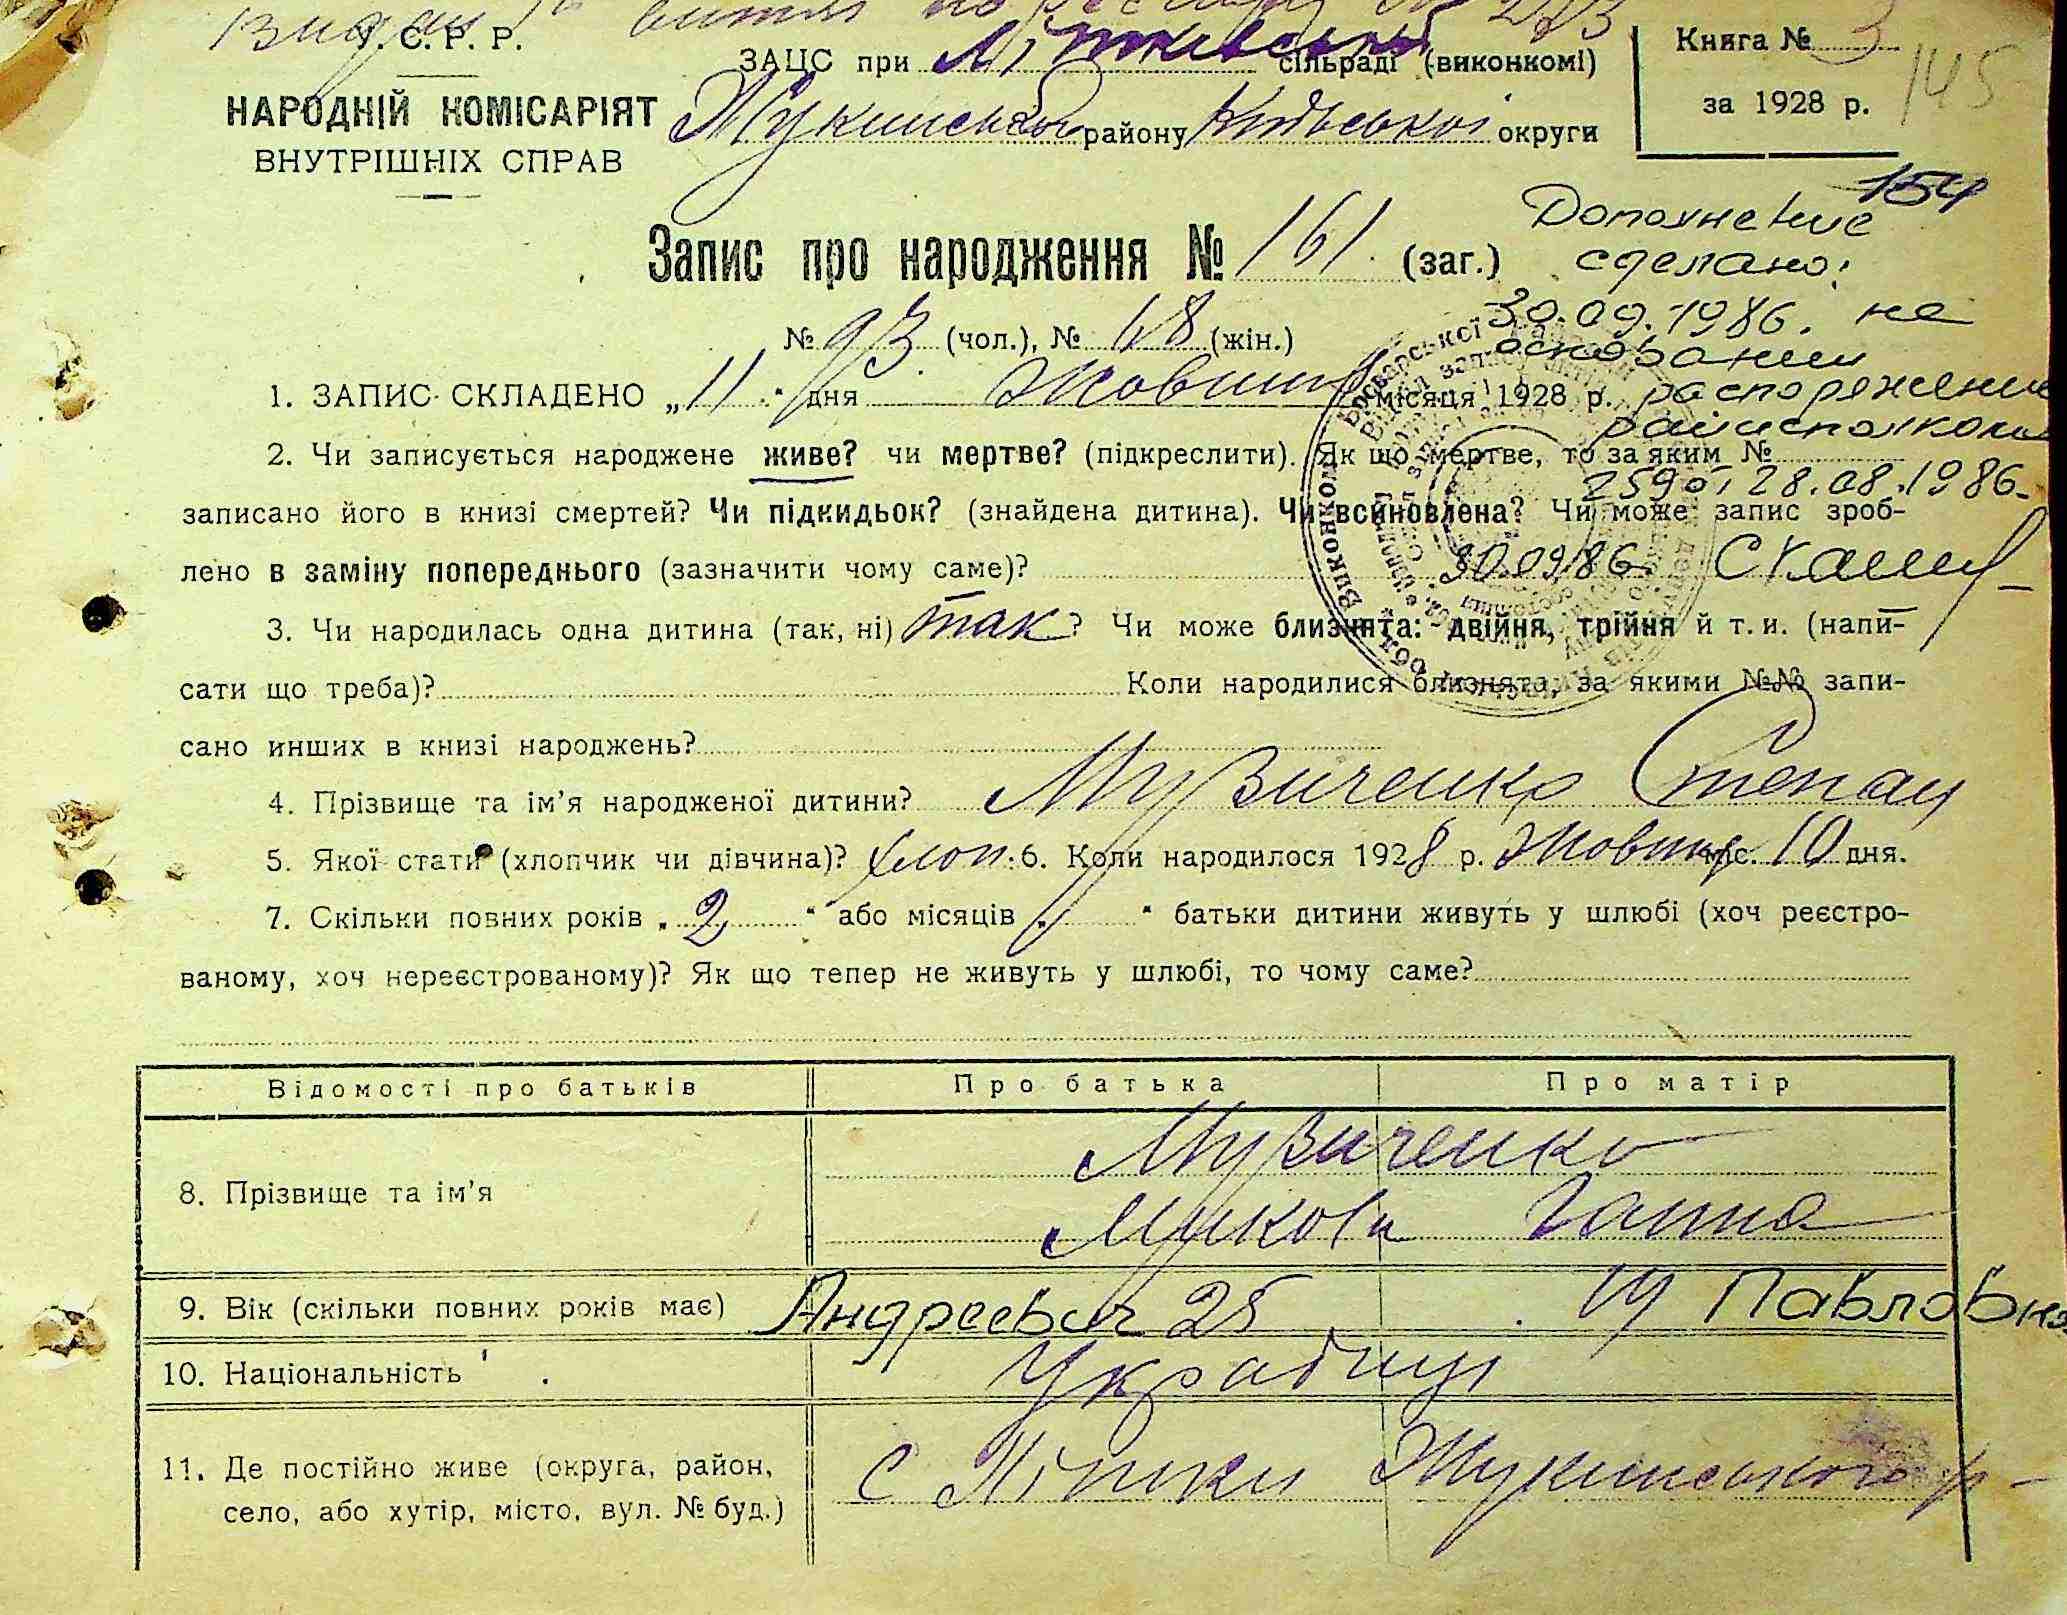 У. С. Р. Р.
НАРОДНІЙ КОМІСАРІЯТ
ВНУТРІШНІХ СПРАВ
ЗАЦС при Літківській сільраді (-виконкомі)
Жукинського району Київської округи
Книга № 3
за 1928 р.
145
154
Запис про народження № 161 (заг.)
Дополнение
сделано:
30.09.1986. на
основании
распоряжения
райисполкома
259 от 28.08.1986.
30.09.86
№ 93 (чол.), № 68 (жін.)
1. ЗАПИС СКЛАДЕНО „ 11 " дня Жовтня місяця 1928 р.
2. Чи записується народжене живе? чи мертве? (підкреслити). Як що мертве, то за яким №
записано його в книзі смертей? Чи підкидьок? (знайдена дитина). Чи всиновлена? Чи може запис зроб-
лено в заміну попереднього (зазначити чому саме)?
3. Чи народилась одна дитина (так, ні) так? Чи може близнята: двійня, трійня й т. и. (напи-
сати що треба)? Коли народилися близнята, за якими №№ запи-
сано инших в книзі народжень?
4. Прізвище та ім'я народженої дитини? Музиченко Степан
5. Якої статі (хлопчик чи дівчина)? хлоп. 6. Коли народилося 1928 р. Жовтня міс. 10 дня.
7. Скільки повних років „ 2 " або місяців „ " батьки дитини живуть у шлюбі (хоч реєстро-
ваному, хоч нереєстрованому)? Як що тепер не живуть у шлюбі, то чому саме?
Відомості про батьків Про батька Про матір
8. Прізвище та ім'я Музиченко
Микола Ганна
9. Вік (скільки повних років має) Андреевич 25 19 Павловна
10. Національність Українці
11. Де постійно живе (округа, район,
село, або хутір, місто, вул. № буд.)
с Літки Жукинського р-